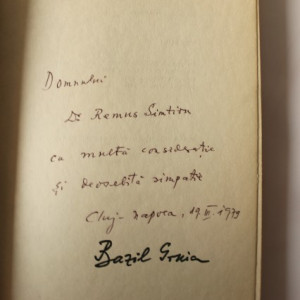 Domnului
Dr Remus Simtion
cu multă considerație
și deosebită simpatie
Cluj-Napoca, 19.VI.1979
Bazil Gruia